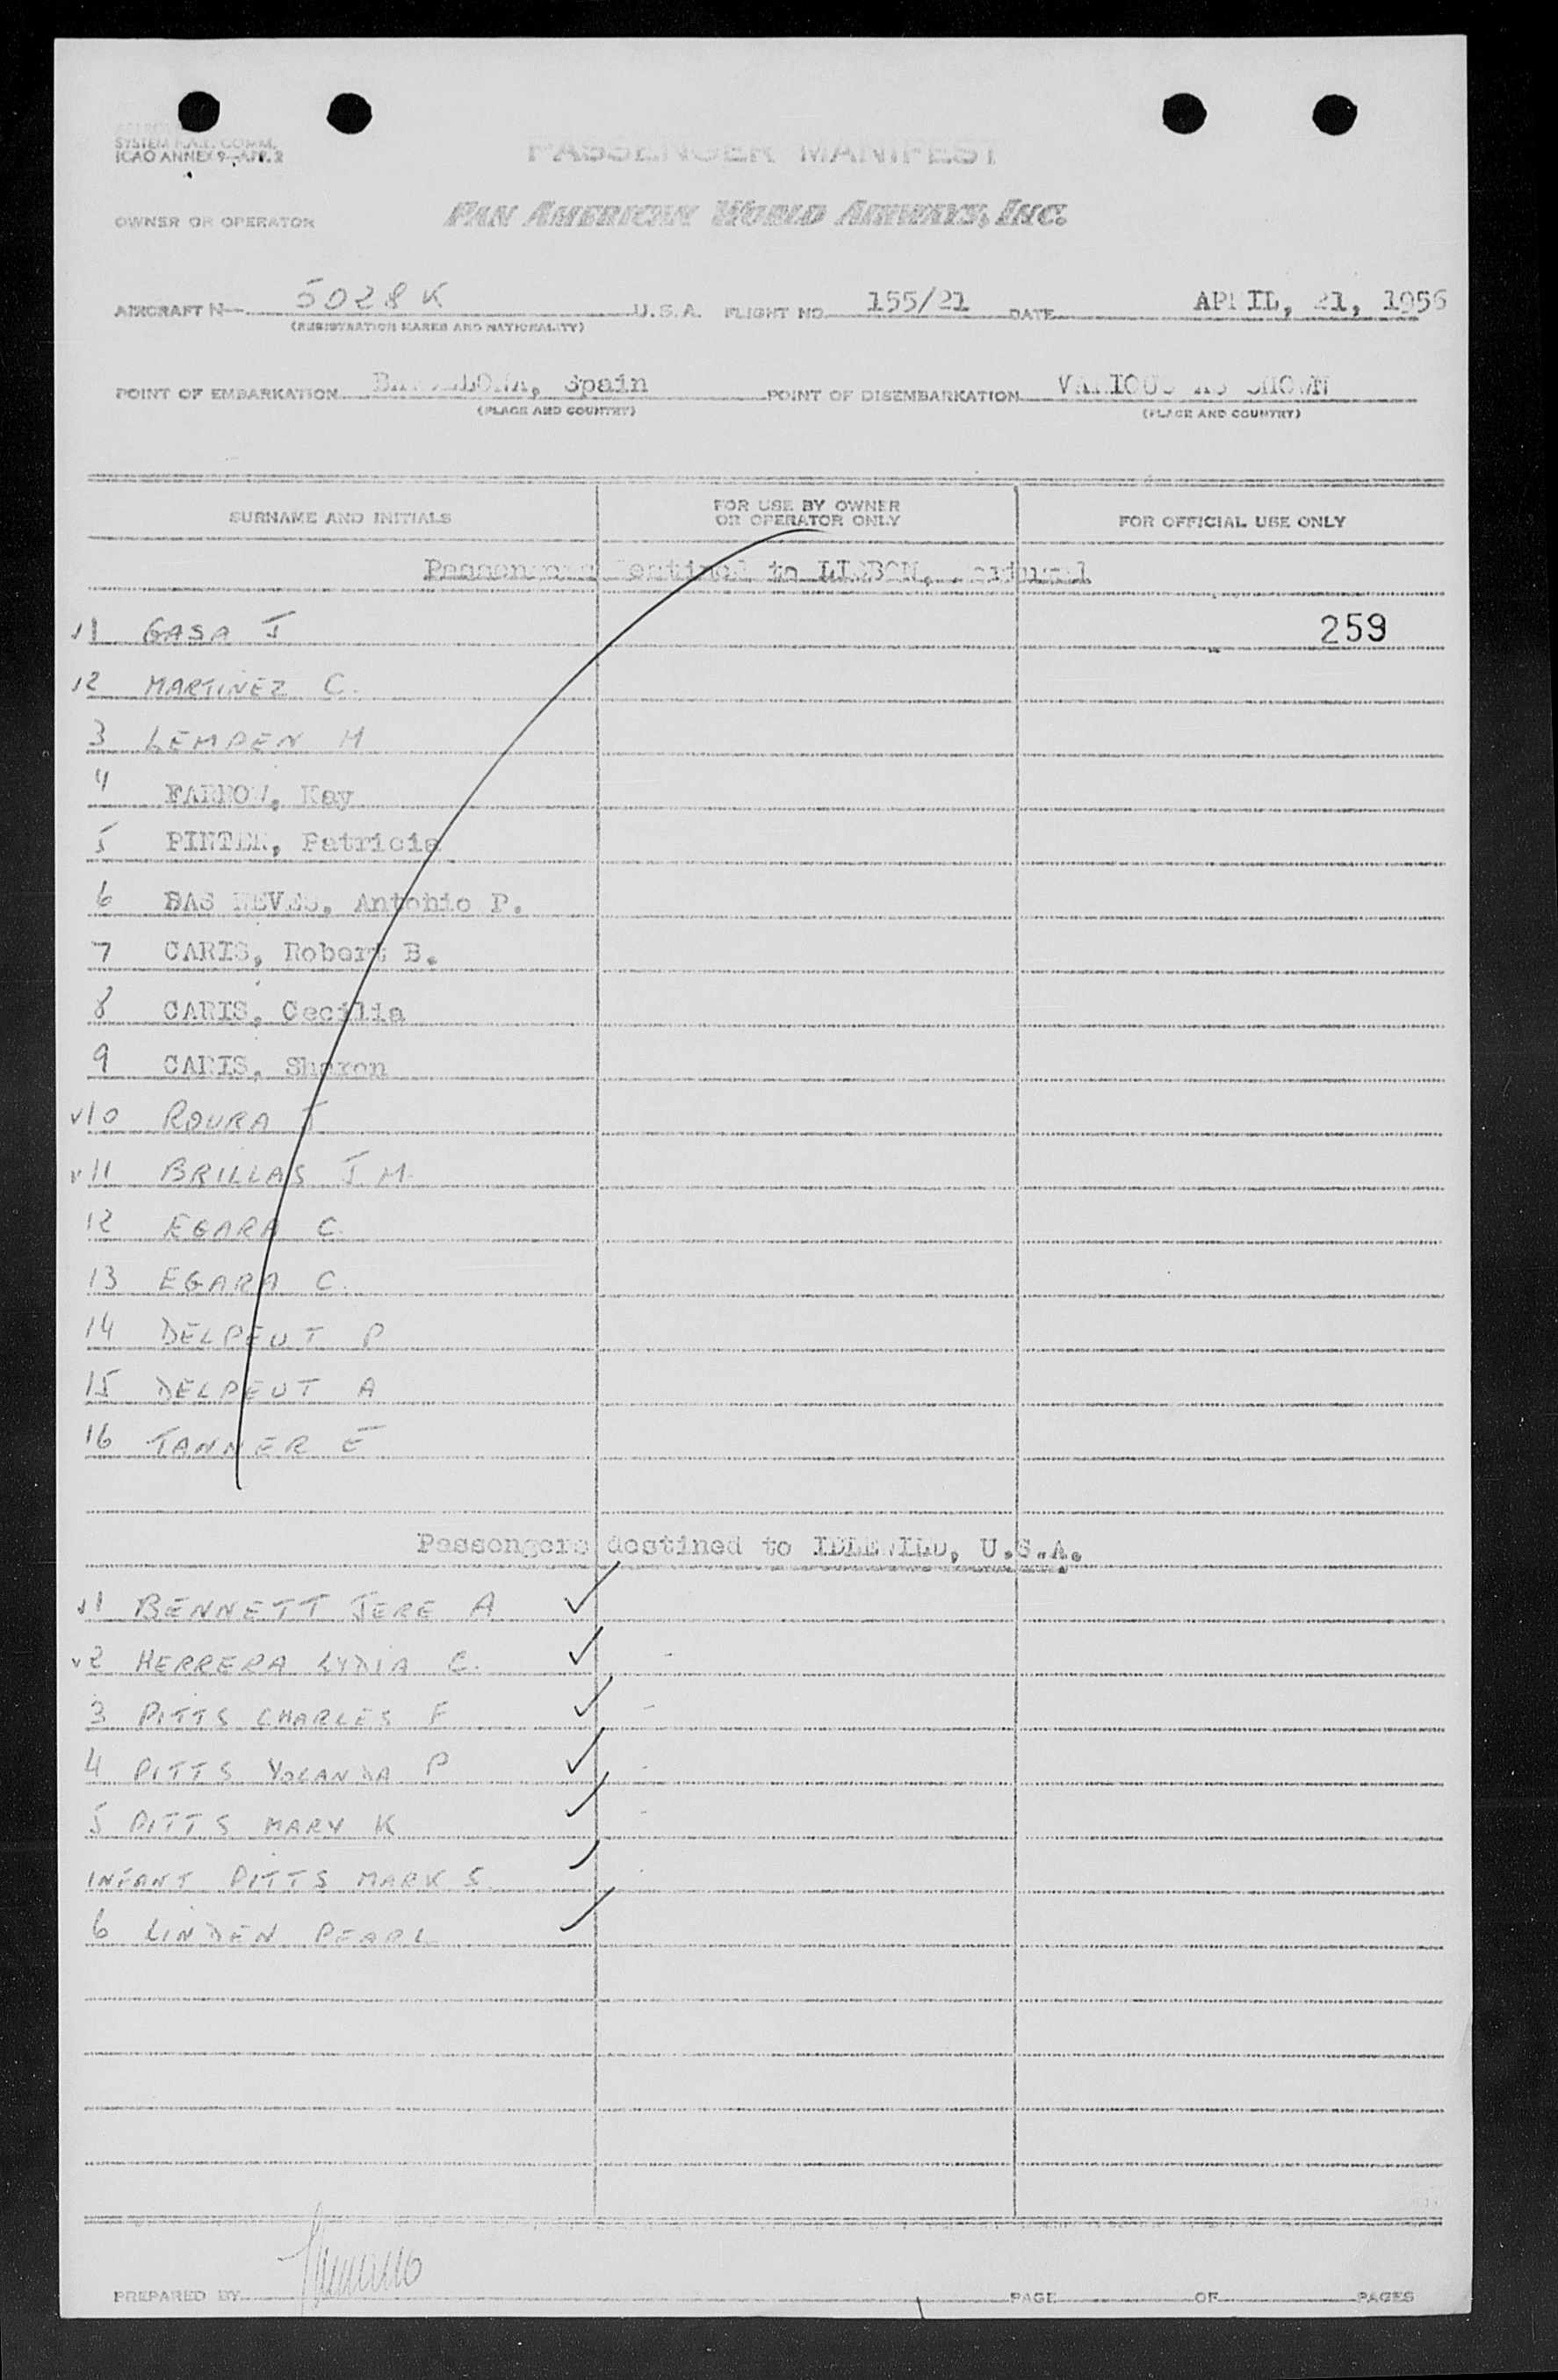 SYSTEM F.A.L. COMM.
ICAO ANNEX 9-APP. 2
PASSENGER MANIFEST
OWNER OR OPERATOR PAN AMERICAN WORLD AIRWAYS, INC.
AIRCRAFT N- 5028K U.S.A. FLIGHT NO. 155/21 DATE APRIL, 21, 1956
(REGISTRATION MARKS AND NATIONALITY)
POINT OF EMBARKATION BARCELONA, Spain POINT OF DISEMBARKATION VARIOUS AS SHOWN
(PLACE AND COUNTRY) (PLACE AND COUNTRY)
SURNAME AND INITIALS FOR USE BY OWNER OR OPERATOR ONLY FOR OFFICIAL USE ONLY
Passengers destined to LISBON, Portugal
✓1 GASA J 259
✓2 MARTINEZ C.
3 LEMPEN H
4 FARROW, Kay
5 PINTER, Patricia
6 DAS NEVES, Antonio P.
7 CARIS, Robert B.
8 CARIS, Cecilia
9 CARIS, Sharon
✓10 ROURA J
✓11 BRILLAS J.M.
12 EGARA C.
13 EGARA C.
14 DELPEUT P
15 DELPEUT A
16 TANNER E
Passengers destined to IDLEWILD, U.S.A.
✓1 BENNETT JERE A ✓
✓2 HERRERA LYDIA C. ✓
3 PITTS CHARLES F ✓
4 PITTS YOLANDA P ✓
5 PITTS MARY K ✓
INFANT PITTS MARK S. ✓
6 LINDEN PEARL ✓
PREPARED BY PAGE OF PAGES